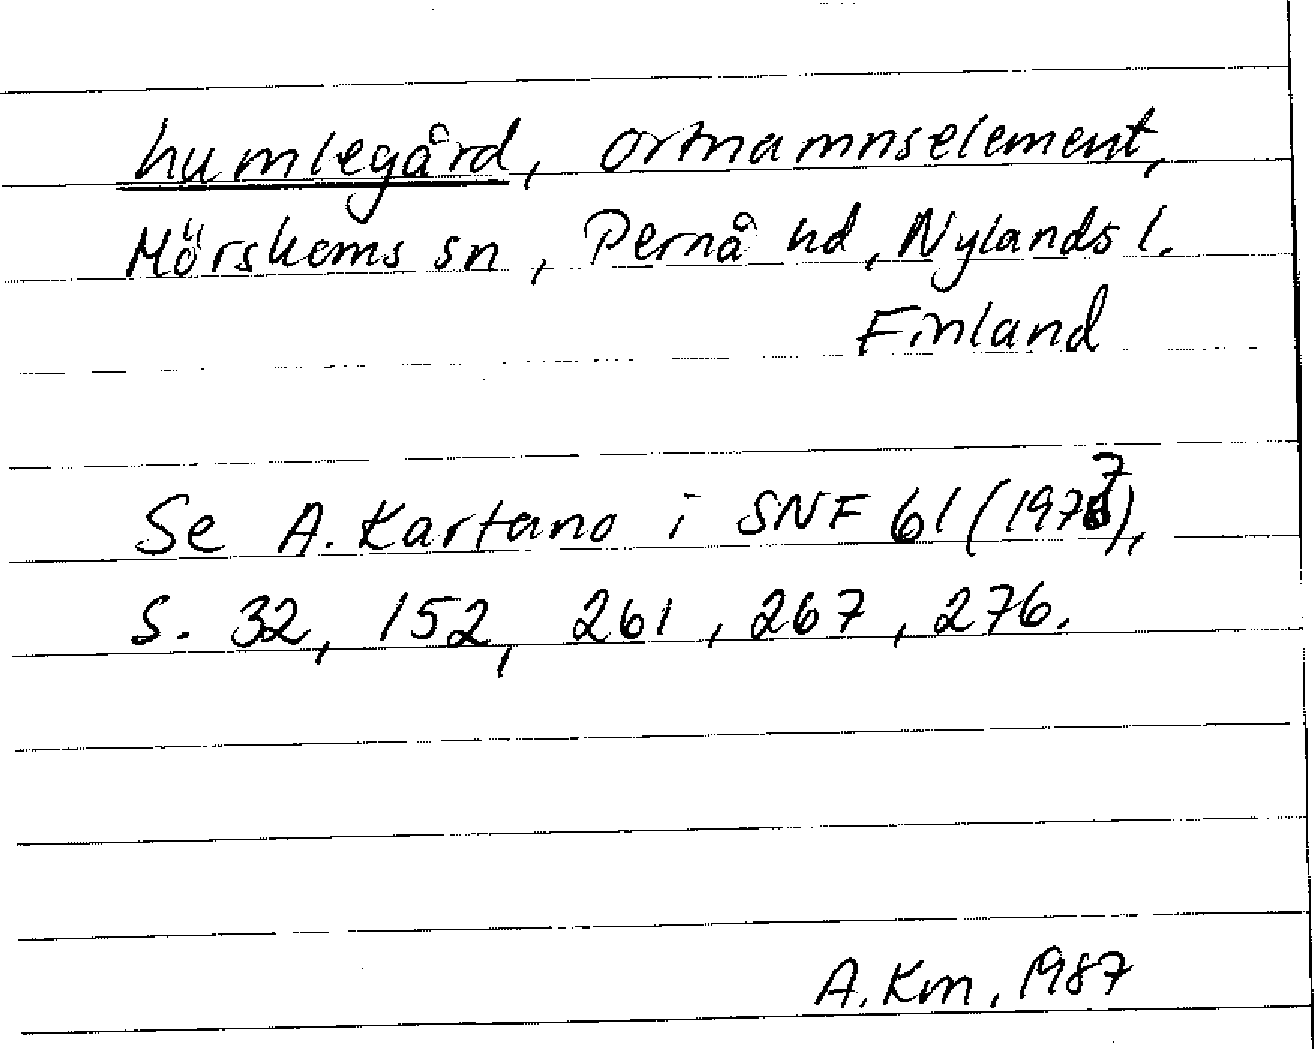 humlegård, ortnamnselement,
Mörskoms sn, Pernå hd, Nylands l.
Finland
Se A. Kartano i SNF 61 (1977),
s. 32, 152, 261, 267, 276.
A. Km, 1987